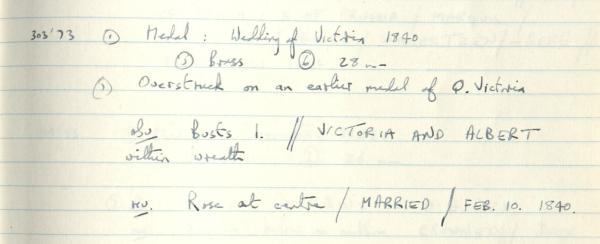 303'73 ① Medal : Wedding of Victoria 1840
③ Brass ④ 28 mm
⑤ Overstruck on an earlier medal of Q. Victoria
obv. Busts l. // VICTORIA AND ALBERT
within wreath
rev. Rose at centre / MARRIED / FEB. 10. 1840.